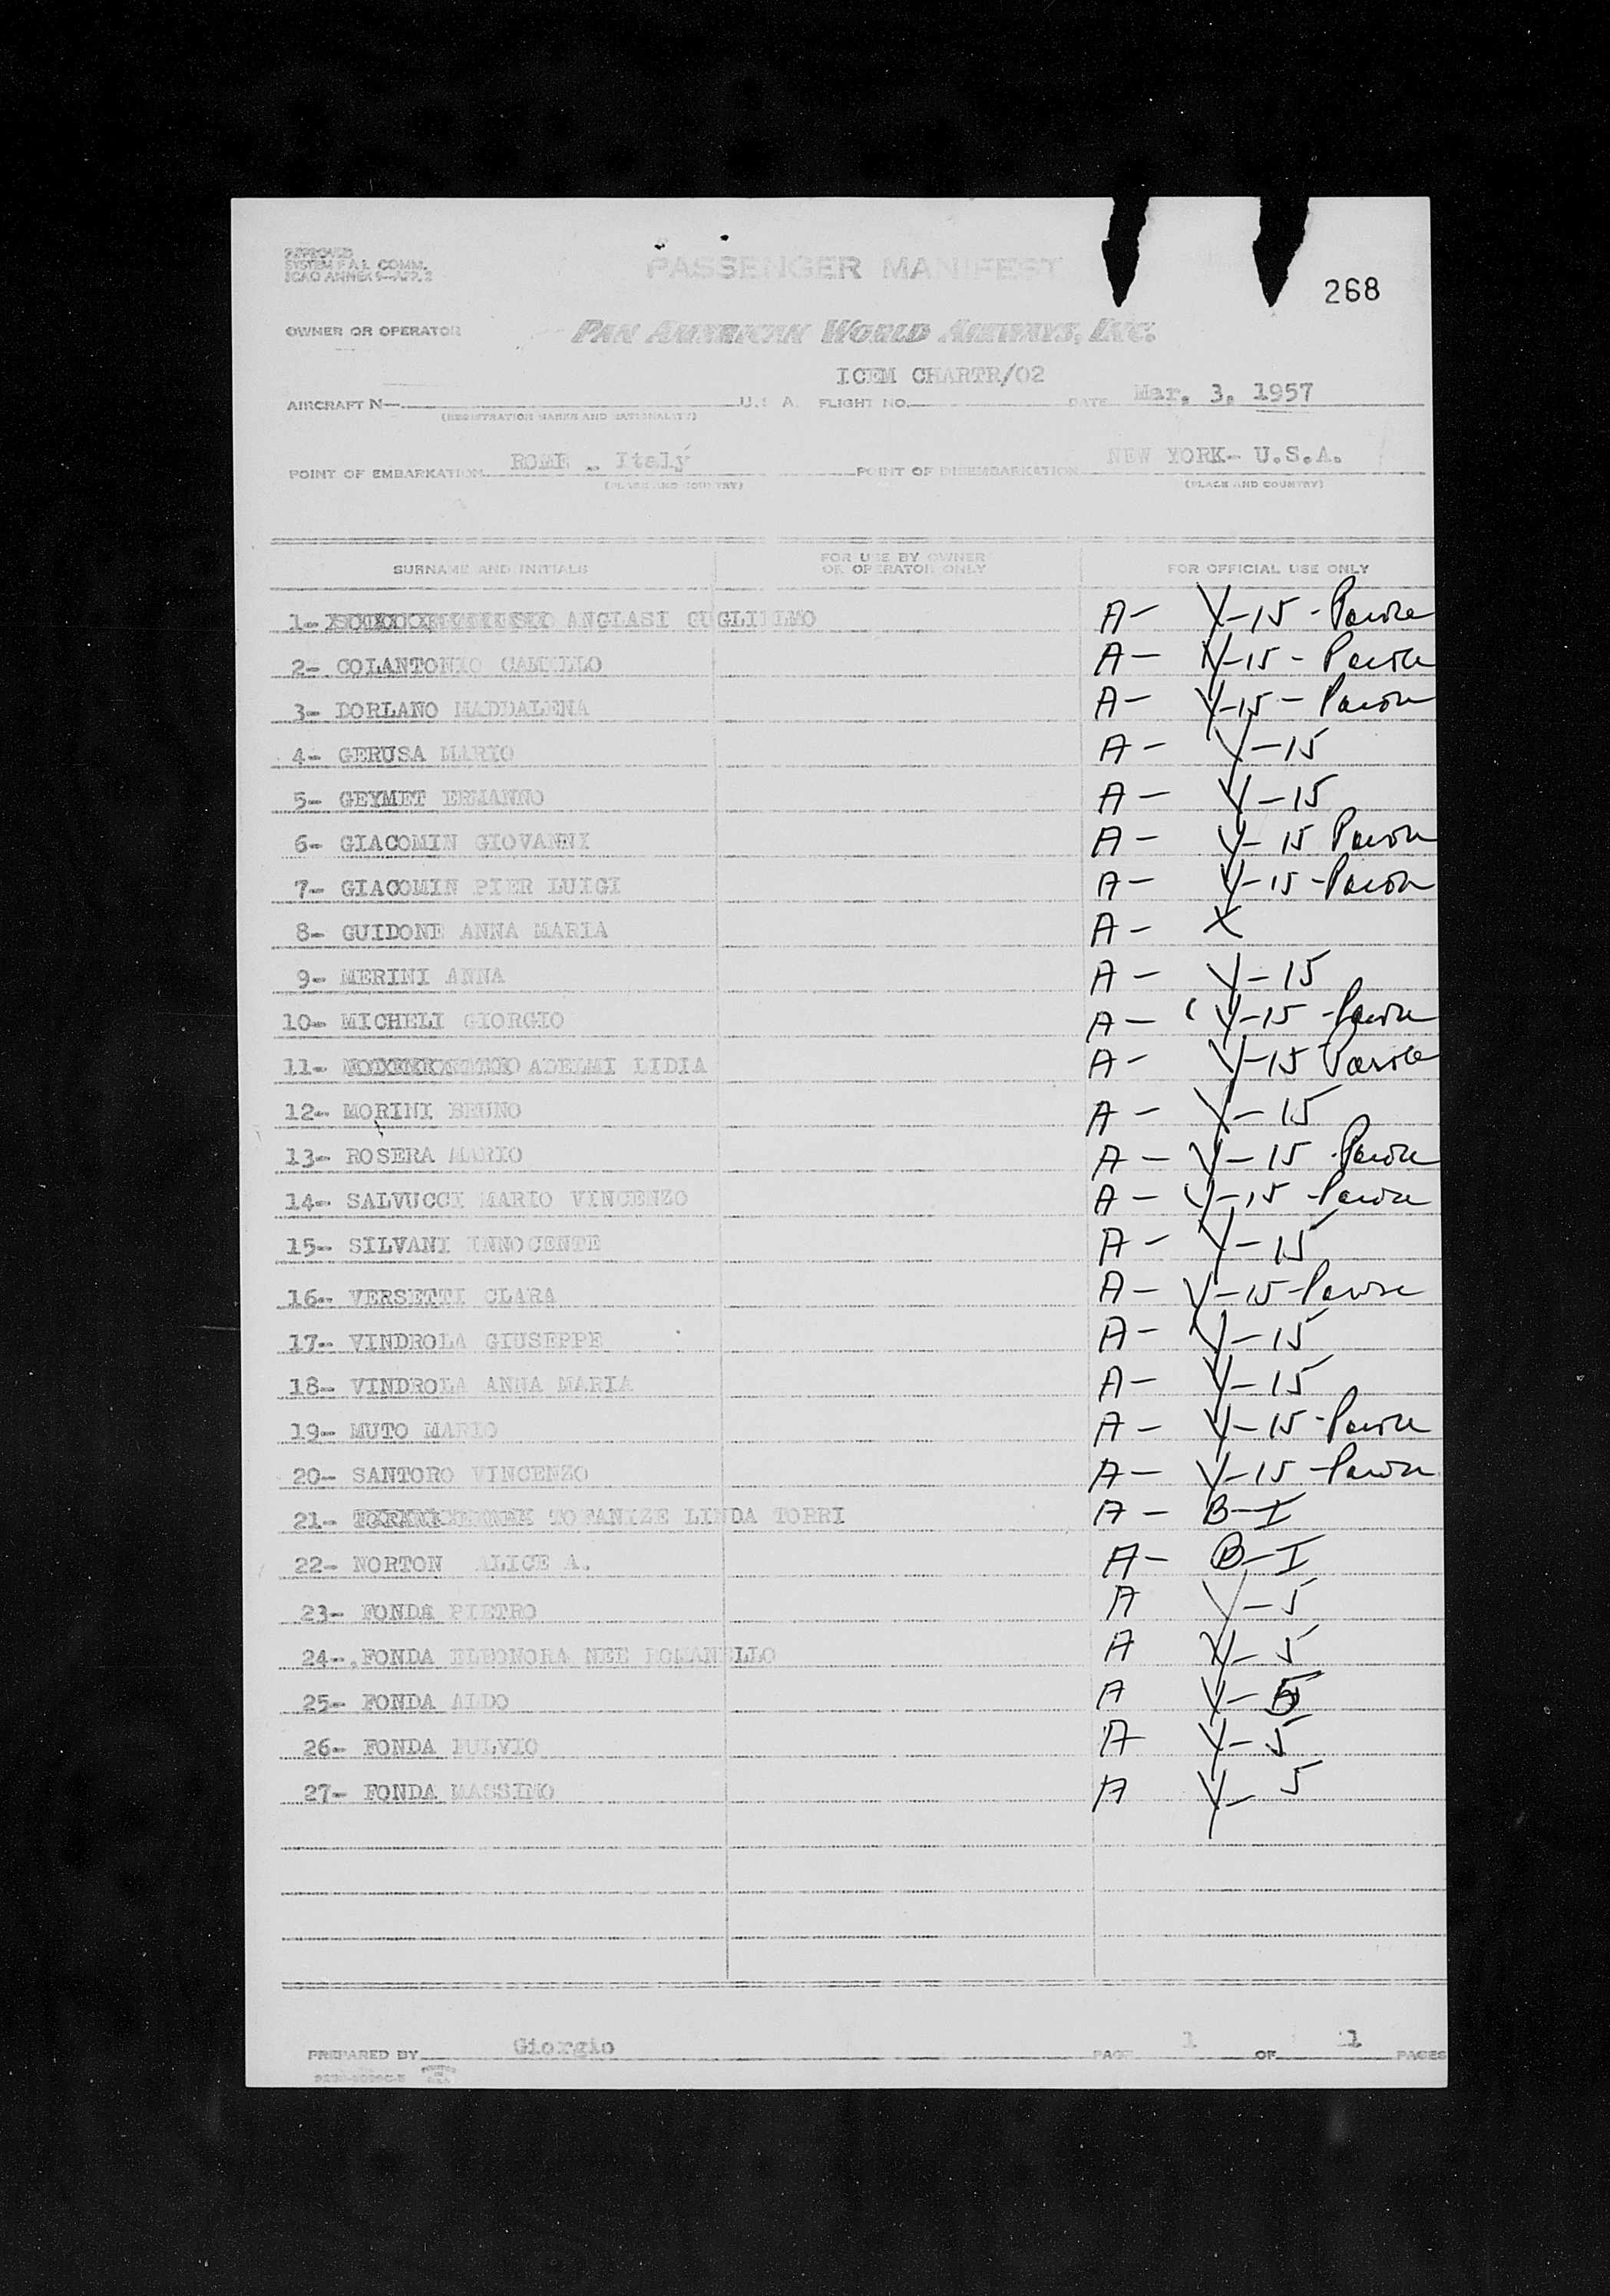 APPROVED
SYSTEM F.A.I. COMM.
ICAO ANNEX 9—APP. 3
PASSENGER MANIFEST
268
OWNER OR OPERATOR PAN AMERICAN WORLD AIRWAYS, INC.
ICEM CHARTR/02
AIRCRAFT N— U.S.A. FLIGHT NO. DATE Mar. 3, 1957
(REGISTRATION MARKS AND NATIONALITY)
POINT OF EMBARKATION ROME - Italy POINT OF DISEMBARKATION NEW YORK- U.S.A.
(PLACE AND COUNTRY) (PLACE AND COUNTRY)
SURNAME AND INITIALS FOR USE BY OWNER OR OPERATOR ONLY FOR OFFICIAL USE ONLY
1- ANGIASI GUGLIELMO A- V-15 - Parole
2- COLANTONIO CAMILLO A- V-15 - Parole
3- DORLANO MADDALENA A- V-15 - Parole
4- GERUSA MARIO A- V-15
5- GEYMET ERMANNO A- V-15
6- GIACOMIN GIOVANNI A- V-15 Parole
7- GIACOMIN PIER LUIGI A- V-15 - Parole
8- GUIDONE ANNA MARIA A- X
9- MERINI ANNA A- V-15
10- MICHELI GIORGIO A- V-15 - Parole
11- ADELMI LIDIA A- V-15 Parole
12- MORINI BRUNO A- V-15
13- ROSERA MARIO A- V-15 - Parole
14- SALVUCCI MARIO VINCENZO A- V-15 - Parole
15- SILVANI INNOCENTE A- V-15
16- VERSETTI CLARA A- V-15 - Parole
17- VINDROLA GIUSEPPE A- V-15
18- VINDROLA ANNA MARIA A- V-15
19- MUTO MARIO A- V-15 - Parole
20- SANTORO VINCENZO A- V-15 - Parole
21- TOFANIZE LINDA TORRI A- B-I
22- NORTON ALICE A. A- B-I
23- FONDA PIETRO A V-5
24- FONDA ELEONORA NEE ROMANELLO A V-5
25- FONDA ALDO A V-5
26- FONDA FULVIO A V-5
27- FONDA MASSIMO A V-5
PREPARED BY Giorgio PAGE 1 OF 1 PAGES